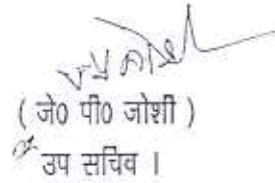 ( जे० पी० जोशी )
उप सचिव ।